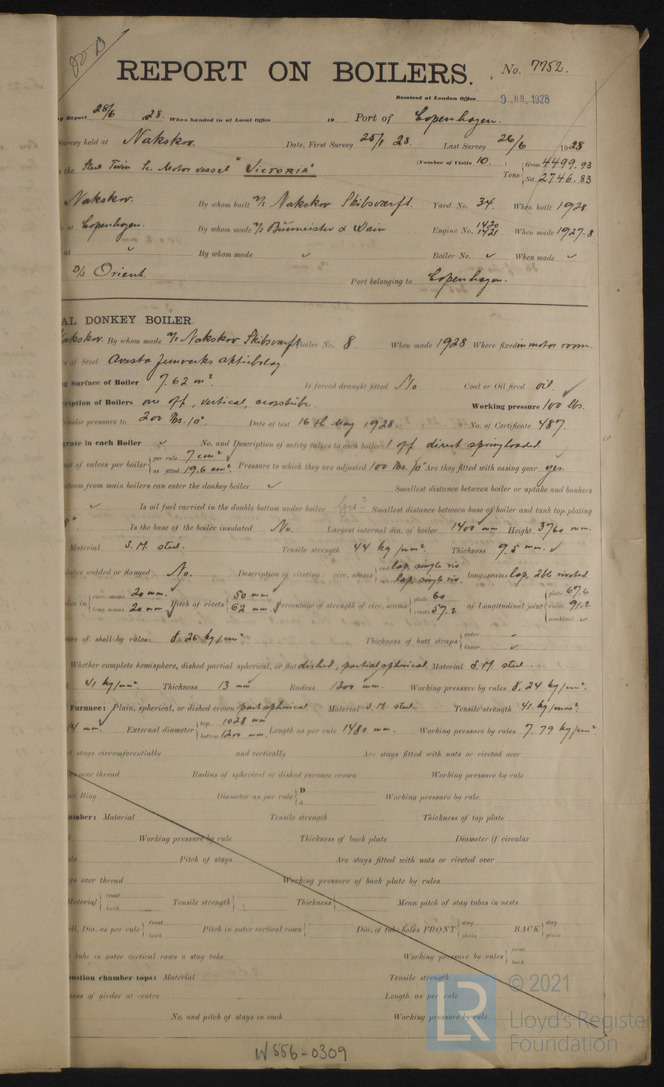 REPORT ON BOILERS. No. 7752.
Received at London Office 9 JUL 1928
Report 28/6 28. When handed in at Local Office 19 Port of Copenhagen.
Survey held at Nakskov. Date, First Survey 25/1 28. Last Survey 26/6 1928
(Number of Visits 10.)
the Steel Twin Sc. Motor vessel "VICTORIA" Tons Gross 4499.93
Net 2746.83
Nakskov. By whom built A/S Nakskov Skibsværft Yard No. 34 When built 1928
at Copenhagen. By whom made A/S Burmeister & Wain Engine No. 1420 1421 When made 1927-8
at By whom made Boiler No. When made
D/S Orient. Port belonging to Copenhagen.
AL DONKEY BOILER.
Nakskov. By whom made A/S Nakskov Skibsværft Boiler No. 8 When made 1928 Where fixed in motor room.
of Steel Avesta Jernverks Aktiebolag
Surface of Boiler 7.62 m². Is forced draught fitted No Coal or Oil fired oil.
ription of Boilers one off, vertical, crosstube. Working pressure 100 lbs.
pressure to 200 lbs./□". Date of test 16th May 1928 No. of Certificate 487
grate in each Boiler No. and Description of safety valves to each boiler 1 off direct springloaded
of valves per boiler per rule 7 cm² as fitted 19.6 cm² Pressure to which they are adjusted 100 lbs./□" Are they fitted with easing gear yes.
steam from main boilers can enter the donkey boiler Smallest distance between boiler or uptake and bunkers
Is oil fuel carried in the double bottom under boiler Smallest distance between base of boiler and tank top plating
Is the base of the boiler insulated No. Largest internal dia. of boiler 1400 mm Height 3760 mm.
Material S.M. steel. Tensile strength 44 kg/mm². Thickness 9.5 mm.
welded or flanged No. Description of riveting: circ. seams lap, single riv. lap, single riv. long. seams lap, dbl riveted
circ. seams 20 mm long seams 20 mm Pitch of rivets 50 mm 62 mm Percentage of strength of circ. seams plate 60 rivets 57.2 of Longitudinal joint plate 67.6 rivets 91.2
of shell by rules 8.26 kg/cm² Thickness of butt straps outer inner
Whether complete hemisphere, dished partial spherical, or flat dished, partial spherical Material S.M. steel.
41 kg/mm². Thickness 13 mm Radius 1300 mm. Working pressure by rules 8.24 kg/cm².
Furnace: Plain, spherical, or dished crown part spherical Material S.M. steel. Tensile strength 41 kg/mm².
14 mm. External diameter top 1028 mm bottom 1200 mm. Length as per rule 1480 mm. Working pressure by rules 7.79 kg/cm².
stays circumferentially and vertically Are stays fitted with nuts or riveted over
over thread Radius of spherical or dished furnace crown Working pressure by rule
Ring Diameter as per rule D d Working pressure by rule
mber: Material Tensile strength Thickness of top plate
Working pressure by rule Thickness of back plate Diameter if circular
Pitch of stays Are stays fitted with nuts or riveted over
over thread Working pressure of back plate by rules
Material front back Tensile strength Thickness Mean pitch of stay tubes in nests
Dia, as per rule front back Pitch in outer vertical rows Dia. of tube holes FRONT stay plain BACK stay plain
tube in outer vertical rows a stay tube Working pressure by rules front back
ustion chamber tops: Material Tensile strength
ness of girder at centre Length as per rule
No. and pitch of stays in each Working pressure by rule
W556-0309
LR
© 2021
Lloyd's Register
Foundation